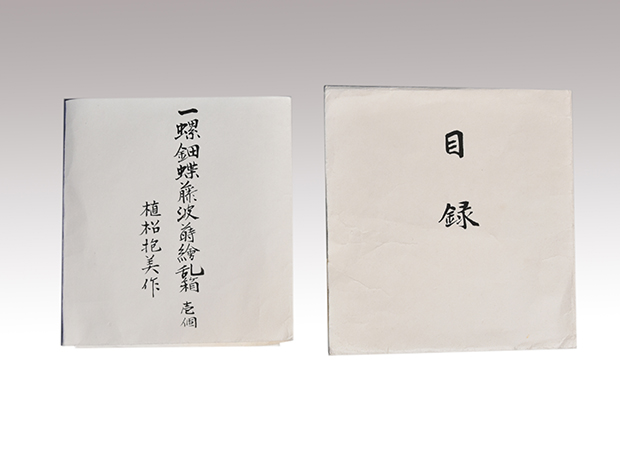 目録
一螺鈿蝶藤波蒔繪乱箱 壱個
植松抱美作